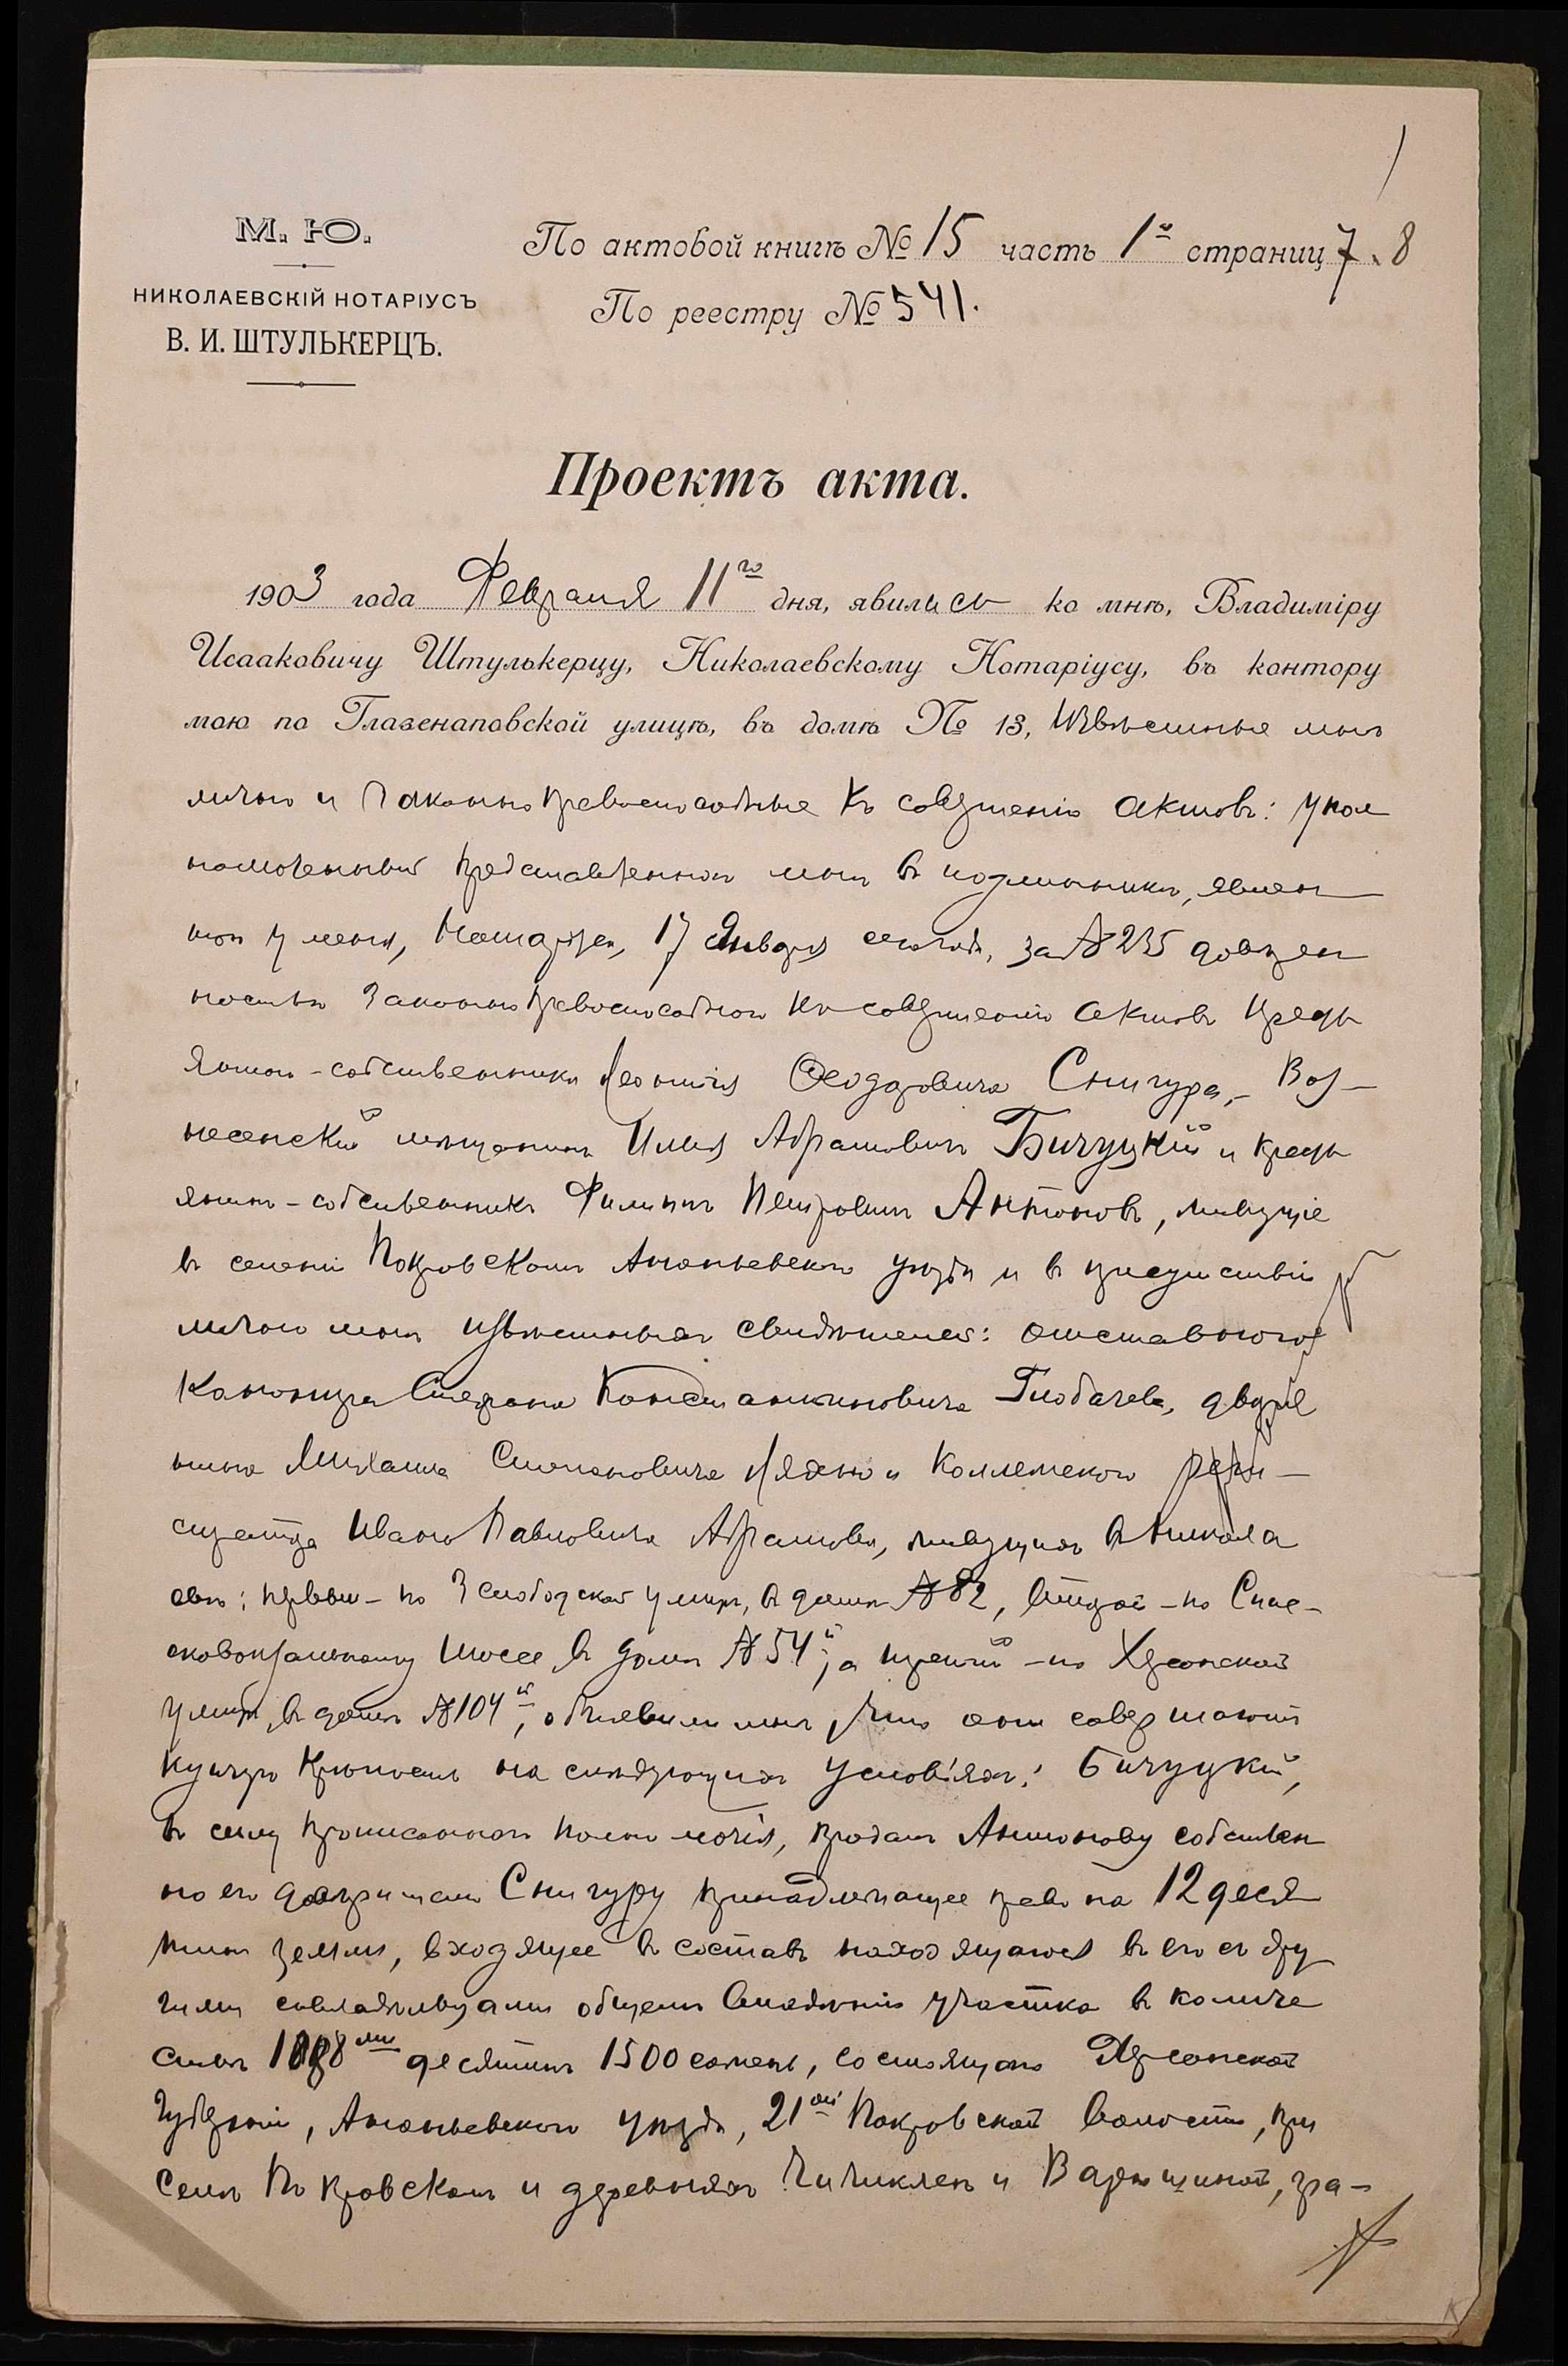 М. Ю.
НИКОЛАЕВСКІЙ НОТАРІУСЪ
В. И. ШТУЛЬКЕРЦЪ.
По актовой книгѣ № 15 часть 1я страниц 7. 8
По реестру № 541.
Проектъ акта.
1903 года Февраля 11го дня, явились ко мнѣ, Владиміру
Исааковичу Штулькерцу, Николаевскому Нотаріусу, въ контору
мою по Глазенаповской улицѣ, въ домѣ № 13, Извѣстные мнѣ
лично и законно правоспособные къ совершенію актовъ: упол
номоченный представленной мнѣ въ подлинникѣ, явлен
ной у меня, Нотаріуса, 17 Января сего года, за № 235 довѣрен
ностью законно правоспособнаго къ совершенію актовъ кресть
янина-собственника Леонтія Ѳеодоровича Снигура, Воз-
несенскій мѣщанинъ Илья Абрамовичъ Бичуцкій и кресть
янинъ-собственникъ Филиппъ Петровичъ Антоновъ, живущіе
въ селеніи Покровскомъ Ананьевскаго уѣзда и въ присутствіи
лично мнѣ извѣстныхъ свидѣтелей: отставного
канонира Степана Константиновича Глобачева, дворя
нина Михаила Степановича Ляхно и Коллежскаго реги-
стратора Ивана Павловича Абрамова, живущихъ въ Никола
евѣ: первый - по 3 слободской улицѣ, въ домѣ № 82, второй - по Спас-
сковокзальному шоссе въ домѣ № 54й, а третій - по Херсонской
улицѣ, въ домѣ № 104й, объявили мнѣ, что они совершаютъ
купчую крѣпость на слѣдующихъ условіяхъ: Бичуцкій,
въ силу прописаннаго полномочія, продалъ Антонову собствен
но его довѣрителю Снигуру принадлежащее право на 12 деся
тинъ земли, входящее въ составъ находящагося въ его съ дру
гими совладѣльцами общемъ владѣніи участка въ количе
ствѣ десятинъ 1500 сажень, состоящаго Херсонской
губерніи, Ананьевскаго уѣзда, 21ой Покровской волости, при
селѣ Покровскомъ и деревняхъ Чичиклеѣ и Варюшиной, гра-